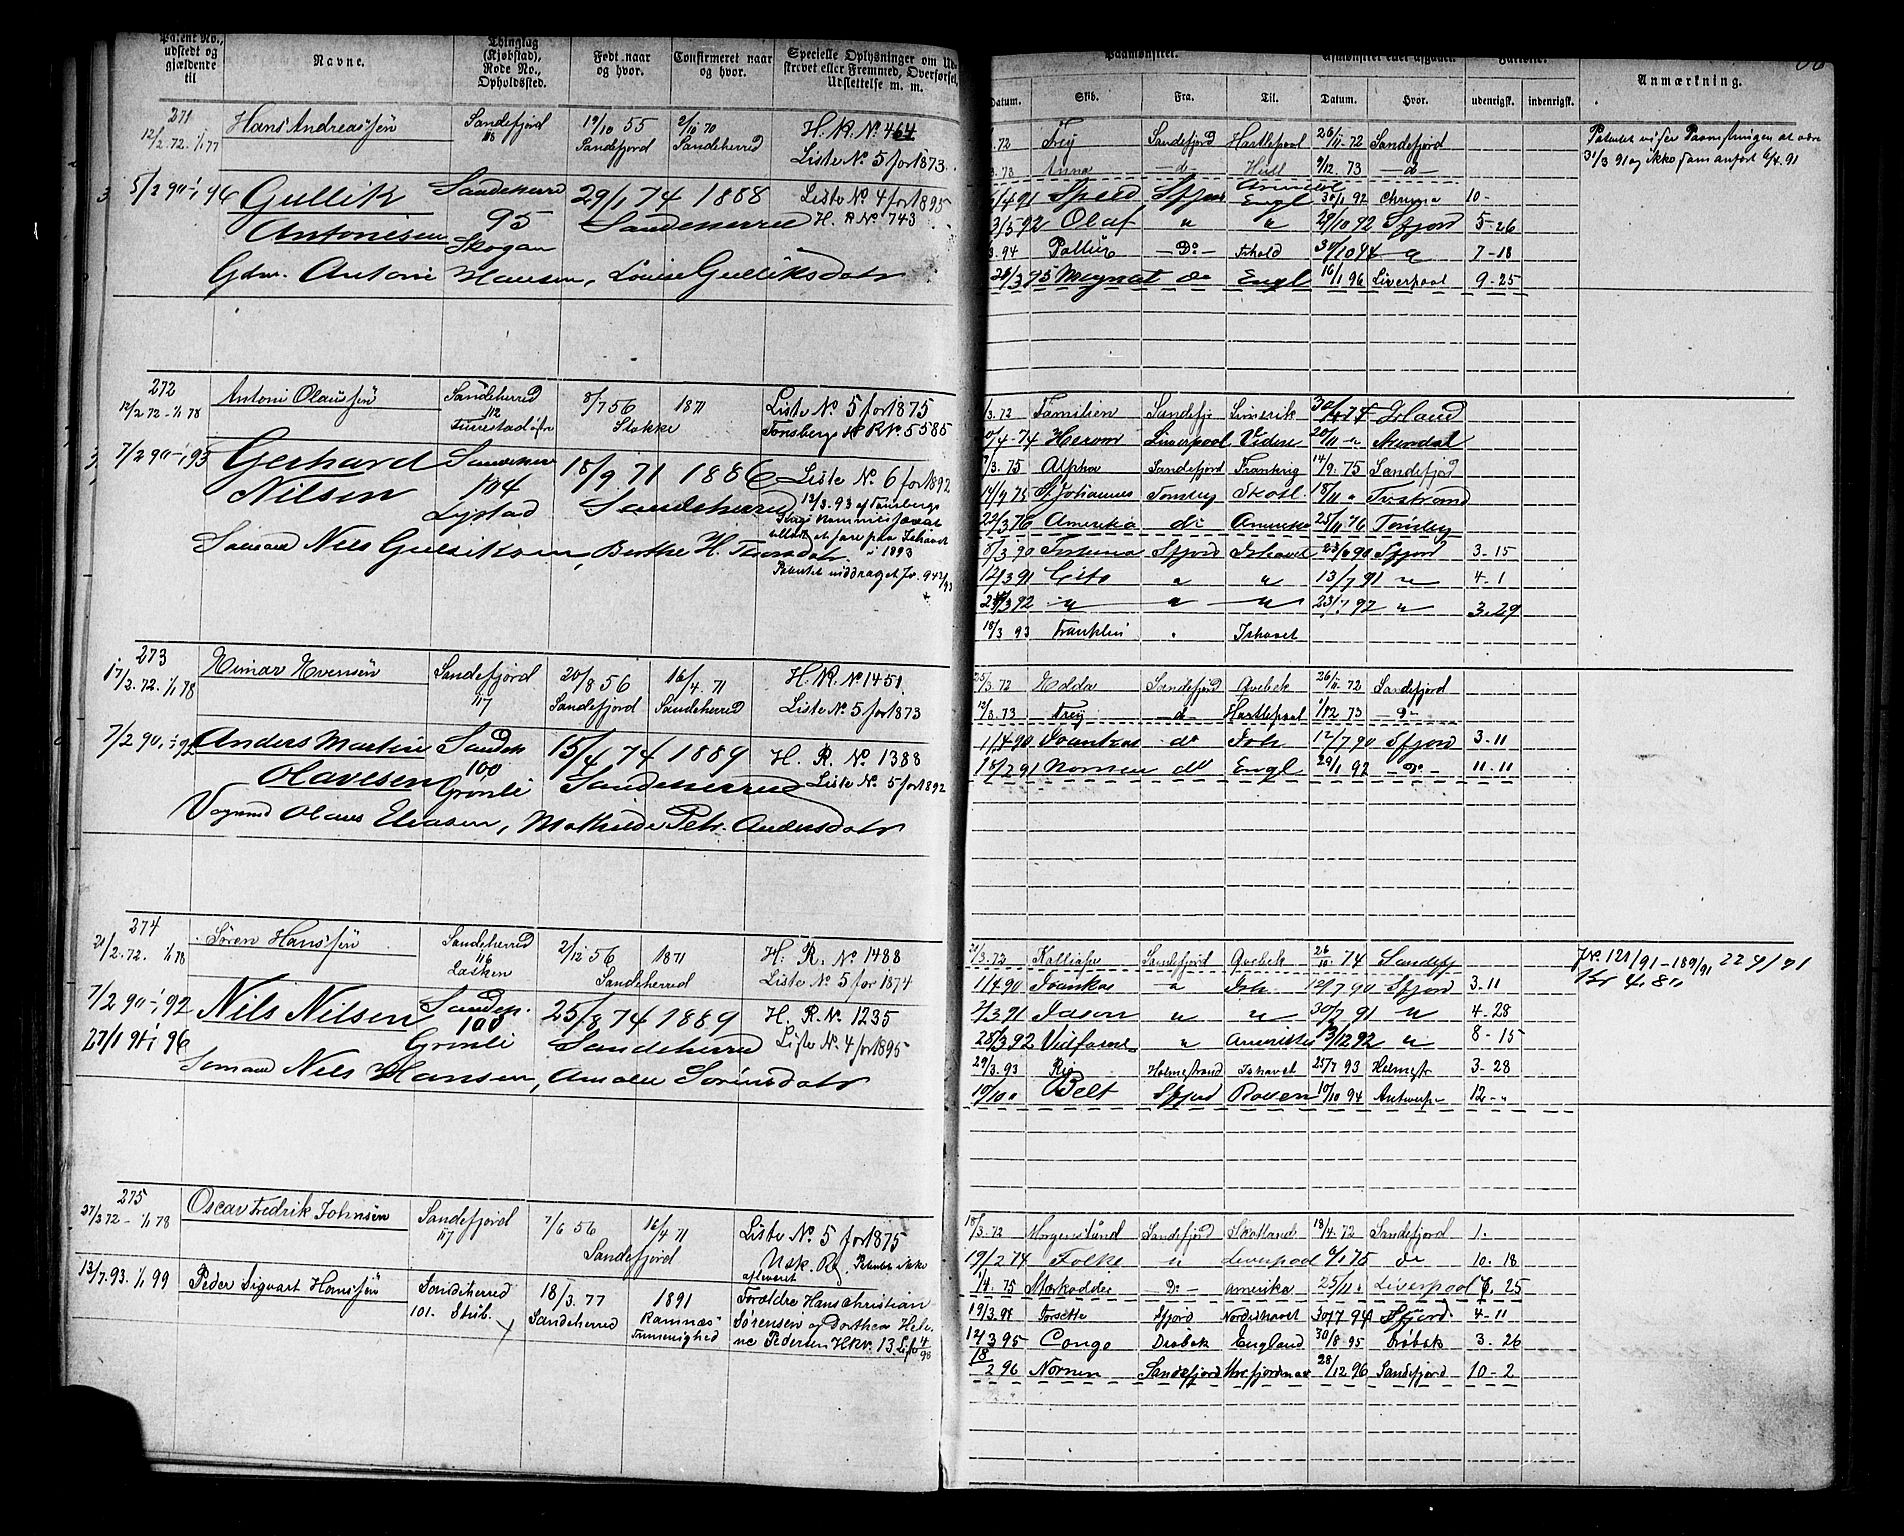 Patent No., udstedt og gjældende til
Navne.
Thinglag (Kjøbstad), Rode No., Opholdssted.
Født naar og hvor.
Confirmeret naar og hvor.
Specielle Oplysninger om Ud-
skrevet eller Fremmed, Overførsel,
Udslettelse m. m.
271
12/2. 72. 1/1 77
Hans Andreassøn
Sandefjord
118
19/10 55
Sandefjord
2/10 70
Sandeherred
H. R. No 464
Liste No 5 for 1873.
5/2 90 - 1/1 96
Gullik
Antonisen
Sandeherred
95
Skogan
29/1 74
1888
Sandeherred
Liste No 4 for 1895
H. R. No 743
Gdm. Antoni Hansen, Lovise Gulliksdatr
272
12/2 72 - 1/1 78
Antoni Olaussøn
Sandeherred
112
8/7 56
Stokke
1871
Liste No 5 for 1875
Tønsbergs H R No 5585
7/2 90 - 1/1 93
Gerhard
Nilsen
Sandeherr
104
Lystad
18/9. 71
1886
Sandeherred
Liste No 6 for 1892
13/3. 93 af Tønsbergs
tilladt at fare paa Ishavet
i 1893
Patentet inddraget
Sømand Nils Gulliksen, Berthe H. Thorsdatr.
273
17/2. 72. 1/1 78
Einar Evensøn
Sandefjord
117
20/8 56
Sandefjord
16/4. 71
Sandeherred
H. R. No 1451.
Liste No 5 for 1873
7/2 90, 1/1 92
Anders Martin
Olavesen
Sandeh
100
Grønli
15/4 74
1889
Sandeherred
H. R. No 1388
Liste No 5 for 1892
Olaus Eliasen, Mathilde Petr. Andersdatr
274
21/2. 72. 1/1 78
Søren Hanssøn
Sandeherred
116
Lasken
2/12 56
1871
Sandeherred
H. R. No 1488
Liste No 5 for 1874
7/2 90 - 1/1 92
27/1 91 1/1 96
Nils Nilsen
Sandeh.
100
Grønli
25/8 74
1889
Sandeherred
H. R. No 1235
Liste No 4 for 1895
Sømand Nils Hansen, Amalie Sørensdatr
275
27/2 72 - 1/1 78
Oscar Fredrik Johnsen
Sandefjord
117
7/6 56
16/4 71
Sandefjord
Liste No 5 for 1875
Patentet ikke
afleveret
13/7. 93. 1/1 99
Peder Sigvart Hanssøn
Sandeherred
101. Stub.
18/3. 77
Sandeherred
1891
Ramnæs
Forældre Hans Christian
Sørensen og Dorthea Hele-
ne Pedersen Hkv. 13. Liste 4/98
Paamønstret.
Afmønstret eller afgaaet.
Fartstid.
Anmærkning.
Datum. Skib. Fra. Til. Datum. Hvor. udenrigsk. indenrigsk.
72 Frey Sandefjord Hartlepool 26/11 72 Sandefjord
73 Anna - d - Hull 9/12 73 - d -
Patentet viser Paamønstringen at være
31/3 91 og ikke som anført 6/4. 91
4 91 Speed Sfjord Engl 30/1 92 Chrnia 10 -
3/5 92 Olaf " " 29/10 92 Sfjord 5 - 26
94 - Do - 30/10 94 " 7 - 18
28/3 95 do Engl 16/1 96 Liverpool 9 - 25
3. 72 Familien Sandefj Limerik 30/4 74 Irland
4 - 74 Herom Liverpool 20/11 - " Arendal
3. 75 Alpha Sandefjord Frankrig 14/9. 75 Sandefjord
14/9 75 St Johannes Tønsberg Skotl. 18/11 " Tvedestrand
22/3 76 Amerika do Amerika 25/11 76 Tønsberg
8/3 90 Fortuna Sfjord Ishavet 23/6 90 Sfjord 3 - 15
12/3 91 Cito " " 13/7 91 " 4 - 1
24/3 92 " " " 23/7 92 " 3. 29
18/3 93 Franklin " Ishavet
25/3. 72 Edda Sandefjord Qvebek 26/11. 72 Sandefjord
12/3. 73 Frey - d - Hartlepool 1/12 73 - D -
1/4 90 Ivankas do Ish. 12/7 90 Sfjord 3 - 11
18/2 91 Nornen do Engl 29/1 92 - Do - 11 - 11
21/3. 73 Sandefjord Qvebek 26/10. 74 Sandefj
JNo 121/91 - 189/91 229/91
1/4 90 Ivankas " Ish. 12/7 90 Sfjord 3 - 11
2/3 91 Jason " " 30/7 91 " 4 - 28
28/3 92 " 3/12 92 " 8 - 15
29/3. 93 Rig Holmestrand Ishavet 25/7 93 Holmestr 3 - 28
10/10 " Belt Sfjord Rouen 10/10 94 Antwerp 12 - "
18/3. 72 Morgenstund Sandefjord Skotland 18/4. 72 Sandefjord 1.
19/2 74 Folke " Liverpool 6/1 75 do 10. 18
1/4. 75 Mærkodder Do - Amerika 25/11 " Liverpool 7. 25
19/3. 94 Forsette Sfjord Nordishavet 30/7 94 Sfjord 4 - 11
12/3 95 Congo Drøbak England 30/8 95 Drøbak 3. 26
18/2 96 Nornen Sandefjord 28/12 96 Sandefjord 10 - 2